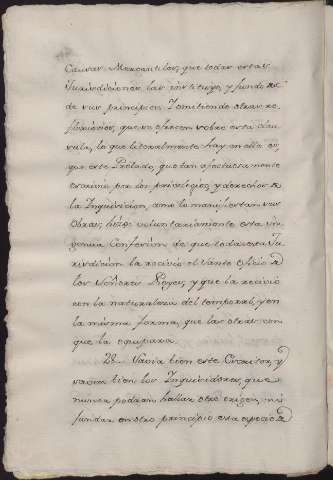 Causas Mercantiles, que todas estas
Jurisdiciones las instituyo, y fundó R.
de sus principios. I omitiendo otras re-
flexiones, que se ofrecen sobre esta clau-
sula, lo que literalmente hay en ella es
que este Prelado, que tan afectuosamente
escrivió por los privilegios, y derechos de
la Inquisicion, como lo manifiestan sus
Obras; hizo voluntariamente esta in-
genua Confesion de que toda esta Ju-
risdicion la recivió el Santo Oficio de
los Señores Reyes, y que la recivió
con la naturaleza del temporal, y en
la misma forma, que las otras con
que la compara.
28. Savia bien este Escritor, y
savian bien los Inquisidores, que
nunca podran hallar otro origen, ni
fundar en otro principio esta especie de